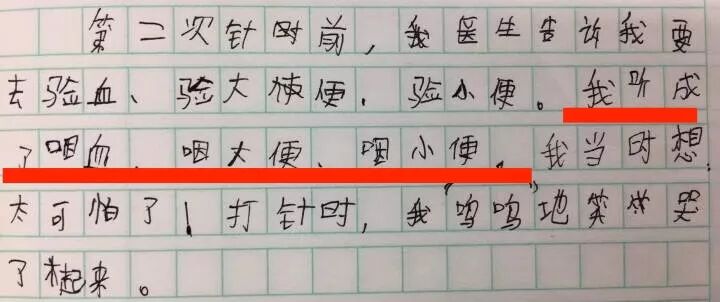 第二次针时前，我医生告诉我要
去验血、验大便，验小便。我听成
了咽血、咽大便、咽小便。我当时想，
太可怕了！打针时，我“呜呜”地哭
了起来。